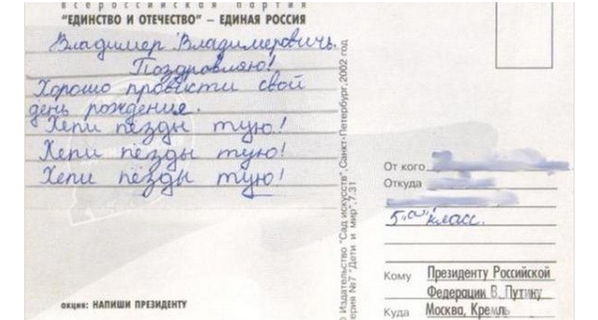 всероссийская партия
"ЕДИНСТВО И ОТЕЧЕСТВО" – ЕДИНАЯ РОССИЯ
Владимер Владимеровичь.
Поздровляю!
Хорошо провысти свой
день рождения.
Хепи пёзды тую!
Хепи пёзды тую!
Хепи пёзды тую!
акция: НАПИШИ ПРЕЗИДЕНТУ
© Издательство "Сад искусств", Санкт-Петербург, 2002 год
серия №7 "Дети и мир". 7.31
От кого
Откуда
5 "а" класс.
Кому Президенту Российской
Федерации В. Путину
Куда Москва, Кремль